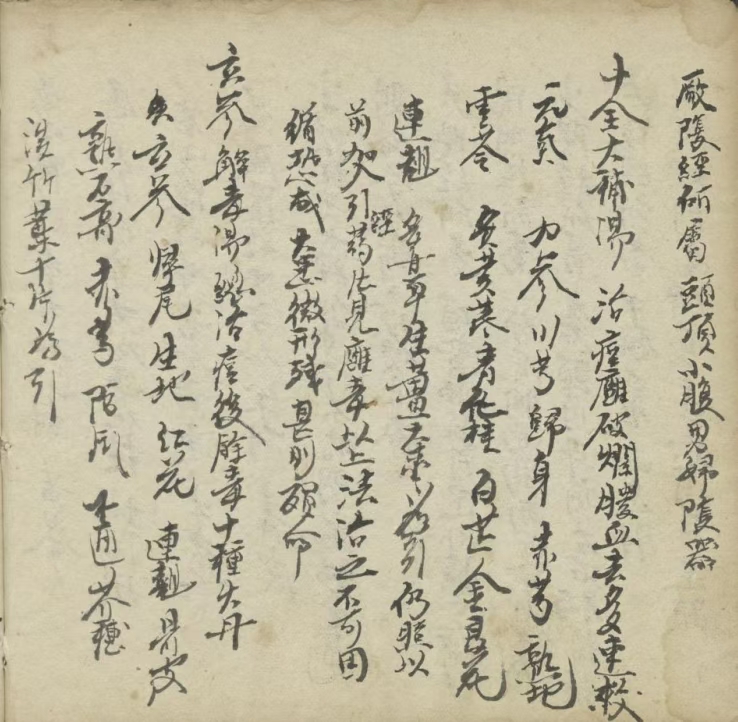 厥陰經所屬頭頂小腹男婦陰器
十全大補湯 治痘癰破爛膿血去多速救
元氣 力參川芎歸身赤芍熟地
雲苓 炙黃芪青化桂白芷金艮花
連翹 甘草生薑大棗為引仍照以
前加引經藥凡見癰毒以上法治之不可因
循恐成大患微形殘甚則殞命
玄參解毒湯總治痘後餘毒十種火丹
玄參歸尾生地紅花連翹骨皮
熟石膏赤芍防風木通芥穗
淡竹葉十片為引